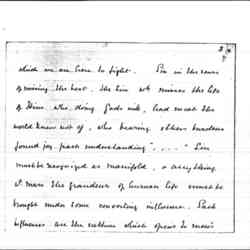 which we are here to fight. Sin in the sense
of missing the best. The Sin wh. misses the life
of Him who, doing God's will, had meat the
world knew not of, who bearing others burdens
found joy, peace understanding " . . . . " Sin
must be recognised as manifold, &
it mars the grandeur of human life must be
brought under some converting influence. Such
influences are the which opens to man's